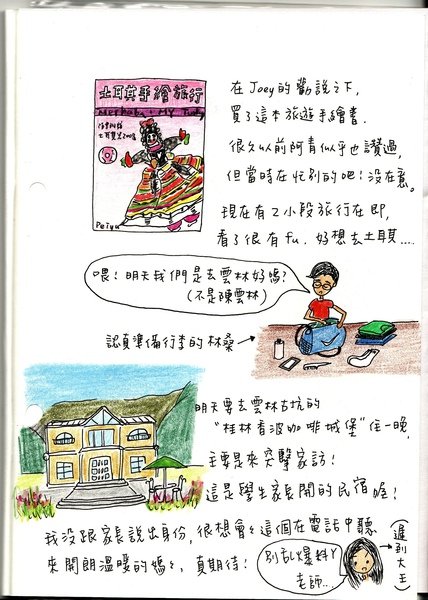 土耳其手繪旅行
Peiyu
在Joey的勸說之下,
買了這本旅遊手繪書.
很久以前阿青似乎也讚過,
但當時在忙別的吧!沒在意。
現在有2小段旅行在即,
看了很有fu. 好想去土耳其....
喂!明天我們是去雲林好嗎?
(不是陳雲林)
認真準備行李的林桑→
明天要去雲林古坑的
"桂林香波咖啡城堡"住一晚,
主要是來突擊家訪!
這是學生家長開的民宿喔!
我沒跟家長說出身份,很想會會這個在電話中聽
來開朗溫暖的媽媽、真期待!
別亂爆料丫
老師..
(遲到大王)